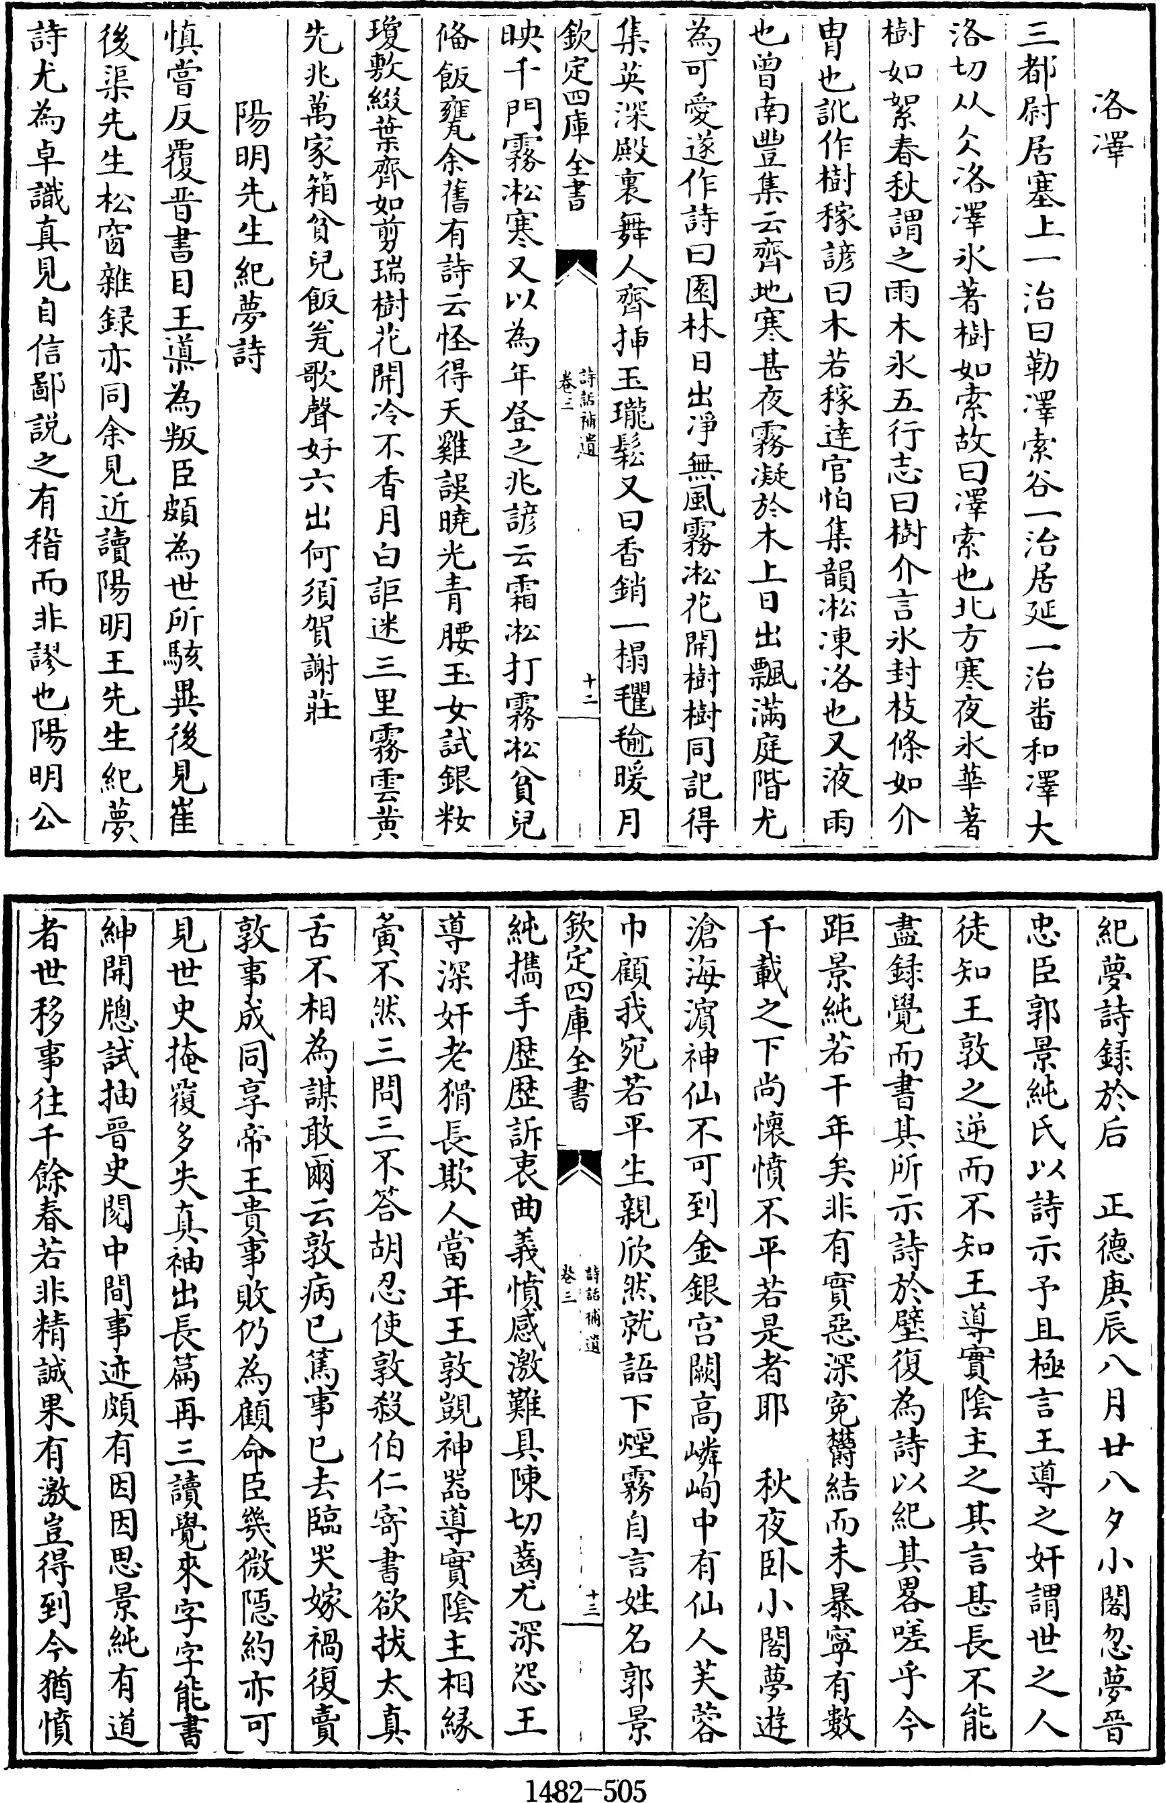 洛澤
三都尉居塞上一治曰勒澤索谷一治居延一治番和澤大
洛切从仌洛澤氷著樹如索故曰澤索也北方寒夜氷華著
樹如絮春秋謂之雨木氷五行志曰樹介言氷封枝條如介
胄也訛作樹稼諺曰木若稼達官怕集韻凇凍洛也又液雨
也曾南豐集云齊地寒甚夜霧凝於木上日出飄滿庭階尤
為可愛遂作詩曰園林日出淨無風霧凇花開樹樹同記得
集英深殿裏舞人齊揷玉瓏鬆又曰香銷一榻氍毹暖月
欽定四庫全書
詩話補遺
卷三
十二
映千門霧凇寒又以為年登之兆諺云霜凇打霧凇貧兒
備飯甕余舊有詩云怪得天雞誤曉光青腰玉女試銀粧
瓊敷綴葉齊如剪瑞樹花開冷不香月白詎迷三里霧雲黄
先兆萬家箱貧兒飯瓮歌聲好六出何須賀謝莊
陽明先生紀夢詩
慎嘗反覆晋書目王導為叛臣頗為世所駭異後見崔
後渠先生松窗雜録亦同余見近讀陽明王先生紀夢
詩尤為卓識真見自信鄙説之有稽而非謬也陽明公
紀夢詩録於后　正德庚辰八月廿八夕小閣忽夢晉
忠臣郭景純氏以詩示予且極言王導之奸謂世之人
徒知王敦之逆而不知王導實陰主之其言甚長不能
盡録覺而書其所示詩於壁復為詩以紀其畧嗟乎今
距景純若干年矣非有實惡深寃欝結而未暴寧有數
千載之下尚懷憤不平若是者耶　秋夜卧小閣夢遊
滄海濵神仙不可到金銀宫闕高嶙峋中有仙人芙蓉
巾顧我宛若平生親欣然就語下煙霧自言姓名郭景
欽定四庫全書
詩話補遺
卷三
十三
純攜手歴歴訴衷曲義憤感激難具陳切齒尤深怨王
導深奸老猾長欺人當年王敦覬神器導實陰主相緣
夤不然三問三不答胡忍使敦殺伯仁寄書欲拔太真
舌不相為謀敢爾云敦病已篤事已去臨哭嫁禍復賣
敦事成同享帝王貴事敗仍為顧命臣幾微隱約亦可
見世史掩覆多失真袖出長篇再三讀覺來字字能書
紳開牕試抽晉史閱中間事迹頗有因因思景純有道
者世移事往千餘春若非精誠果有激豈得到今猶憤
1482-505